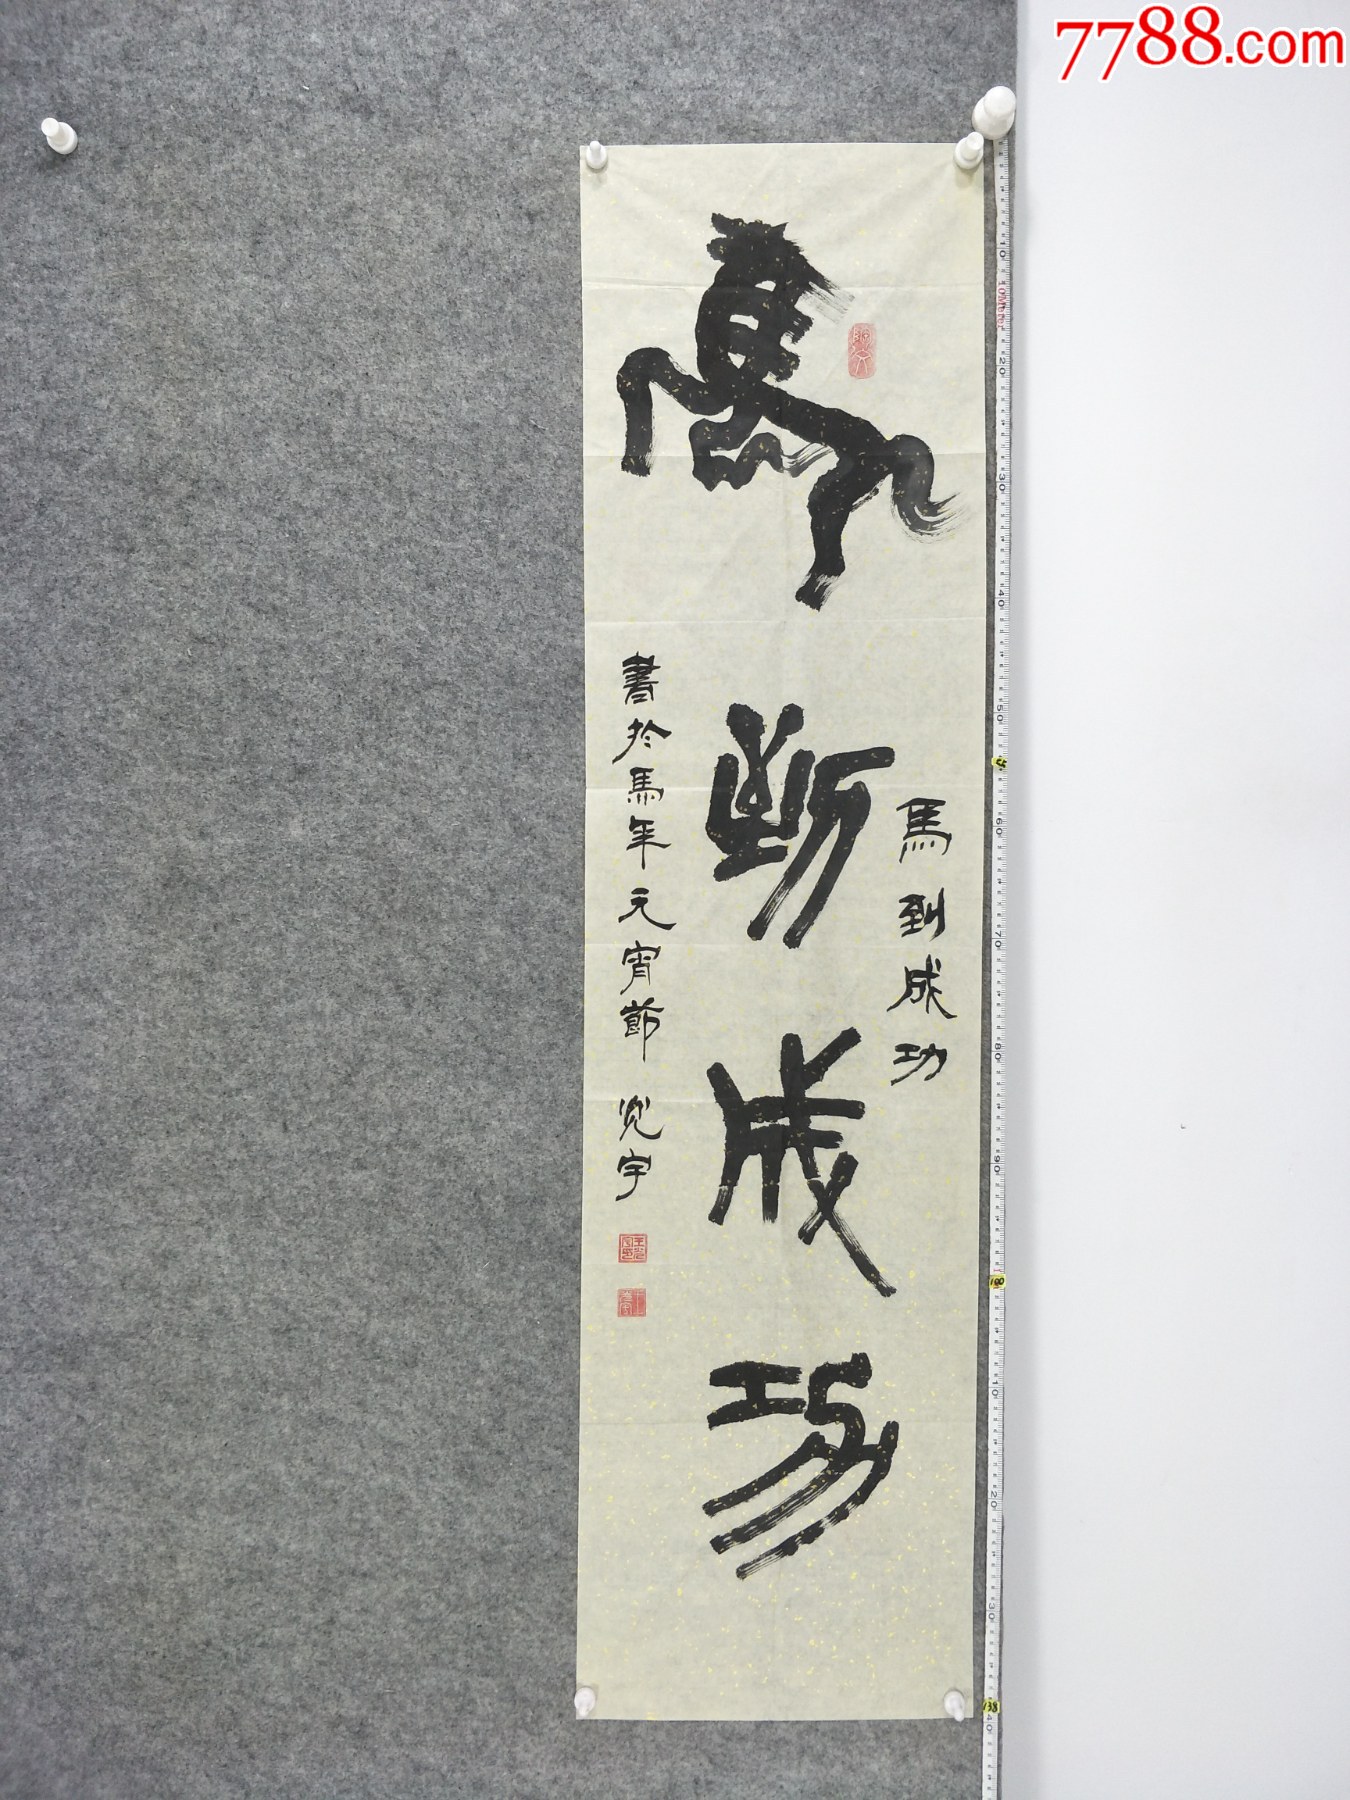 7788.com
馬到成功
馬到成功
書於馬年元宵節
宇